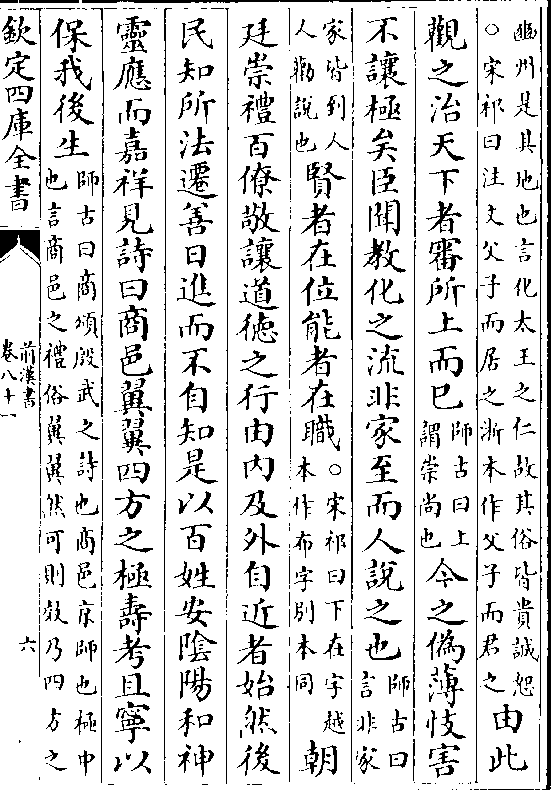 豳州是其地也言化太王之仁故其俗皆貴誠恕
○宋祁曰注文父子而居之浙本作父子而君之
由此
觀之治天下者審所上而已
師古曰上
謂崇尚也
今之偽薄忮害
不讓極矣臣聞教化之流非家至而人說之也
師古曰
言非家
家皆到人
人勸說也
賢者在位能者在職
○宋祁曰下在字越
本作布字別本同
朝
廷崇禮百僚敬讓道德之行由内及外自近者始然後
民知所法遷善日進而不自知是以百姓安陰陽和神
靈應而嘉祥見詩曰商邑翼翼四方之極壽考且寧以
保我後生
師古曰商頌殷武之詩也商邑京師也極中
也言商邑之禮俗翼翼然可則效乃四方之
欽定四庫全書
前漢書
卷八十一
六